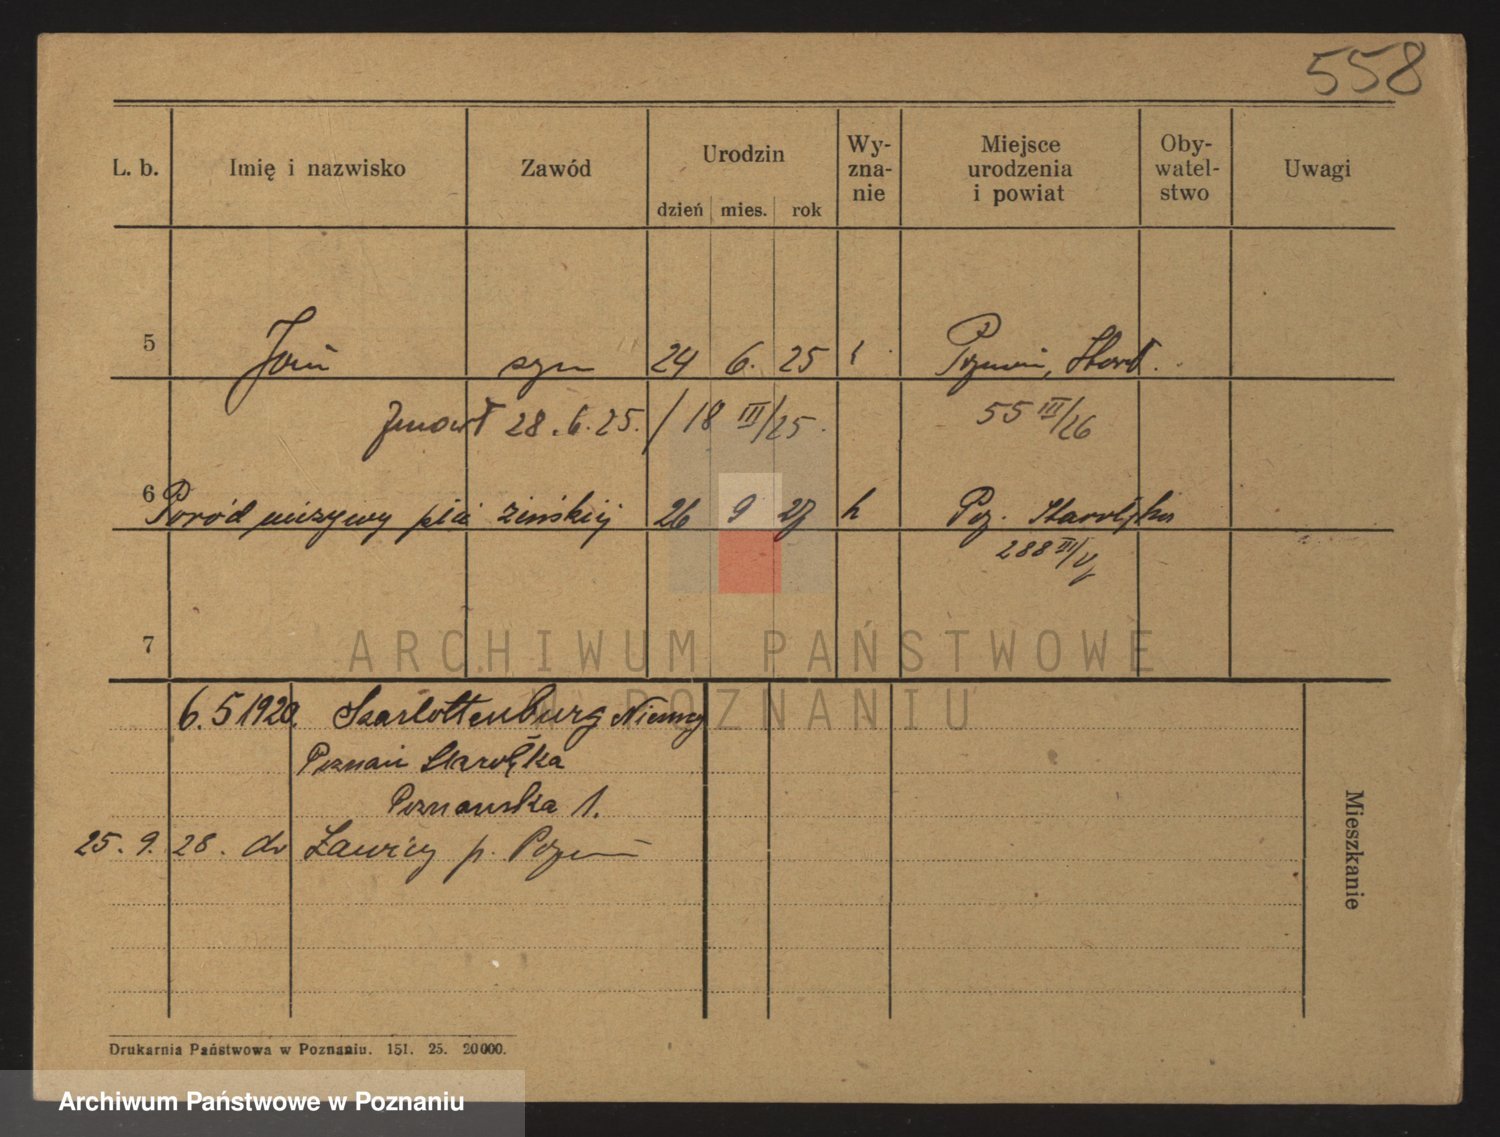 558
L. b. Imię i nazwisko Zawód Urodzin Wy-zna-nie Miejsce urodzenia i powiat Oby-watel-stwo Uwagi
dzień mies. rok
5 Jan syn 24 6. 25 Poznań,
Zmarł 28.6.25. / 18 III/25. 55 III/26
6 Poród nieżywy płci żeńskiej 26 9 27 k Poz. Starołęka
288 III/
7
ARCHIWUM PAŃSTWOWE
W POZNANIU
6.5 1920. Szarlottenburg Niemcy
Poznań Starołęka
Poznańska 1.
25. 9. 28. do Ławicy p. Poznań
Mieszkanie
Drukarnia Państwowa w Poznaniu. 151. 25. 20000.
Archiwum Państwowe w Poznaniu